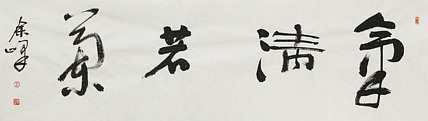 氣清若蘭
余峰